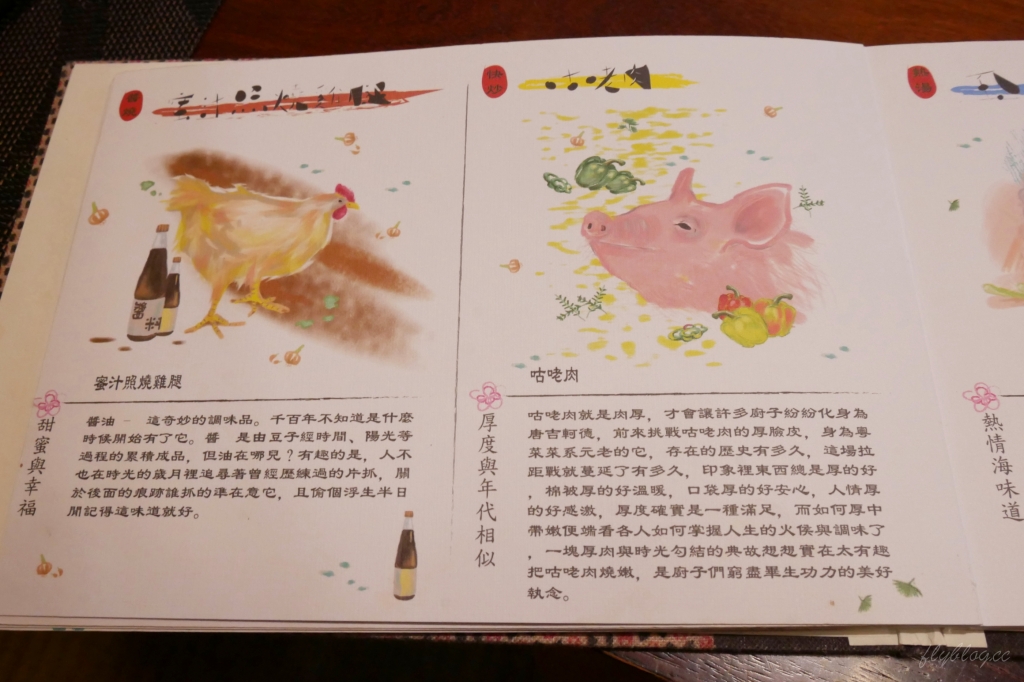 蜜汁照燒雞腿
咕咾肉
熱湯
快炒
咕咾肉
酒
料
蜜汁照燒雞腿
甜蜜與幸福
醬油 - 這奇妙的調味品。千百年不知道是什麼
時侯開始有了它。醬 是由豆子經時間、陽光等
過程的累積成品，但油在哪兒？有趣的是，人不
也在時光的歲月裡追尋著曾經歷練過的片抓，關
於後面的痕跡誰抓的準在意它，且偷個浮生半日
閒記得這味道就好。
厚度與年代相似
咕咾肉就是肉厚，才會讓許多廚子紛紛化身為
唐吉軻德，前來挑戰咕咾肉的厚臉皮，身為粵
菜菜系元老的它，存在的歷史有多久，這場拉
距戰就蔓延了有多久，印象裡東西總是厚的好
，棉被厚的好溫暖，口袋厚的好安心，人情厚
的好感激，厚度確實是一種滿足，而如何厚中
帶嫩便端看各人如何掌握人生的火侯與調味了
，一塊厚肉與時光勾結的典故想想實在太有趣
把咕咾肉燒嫩，是廚子們窮盡畢生功力的美好
執念。
熱情海味道
flyblog.cc